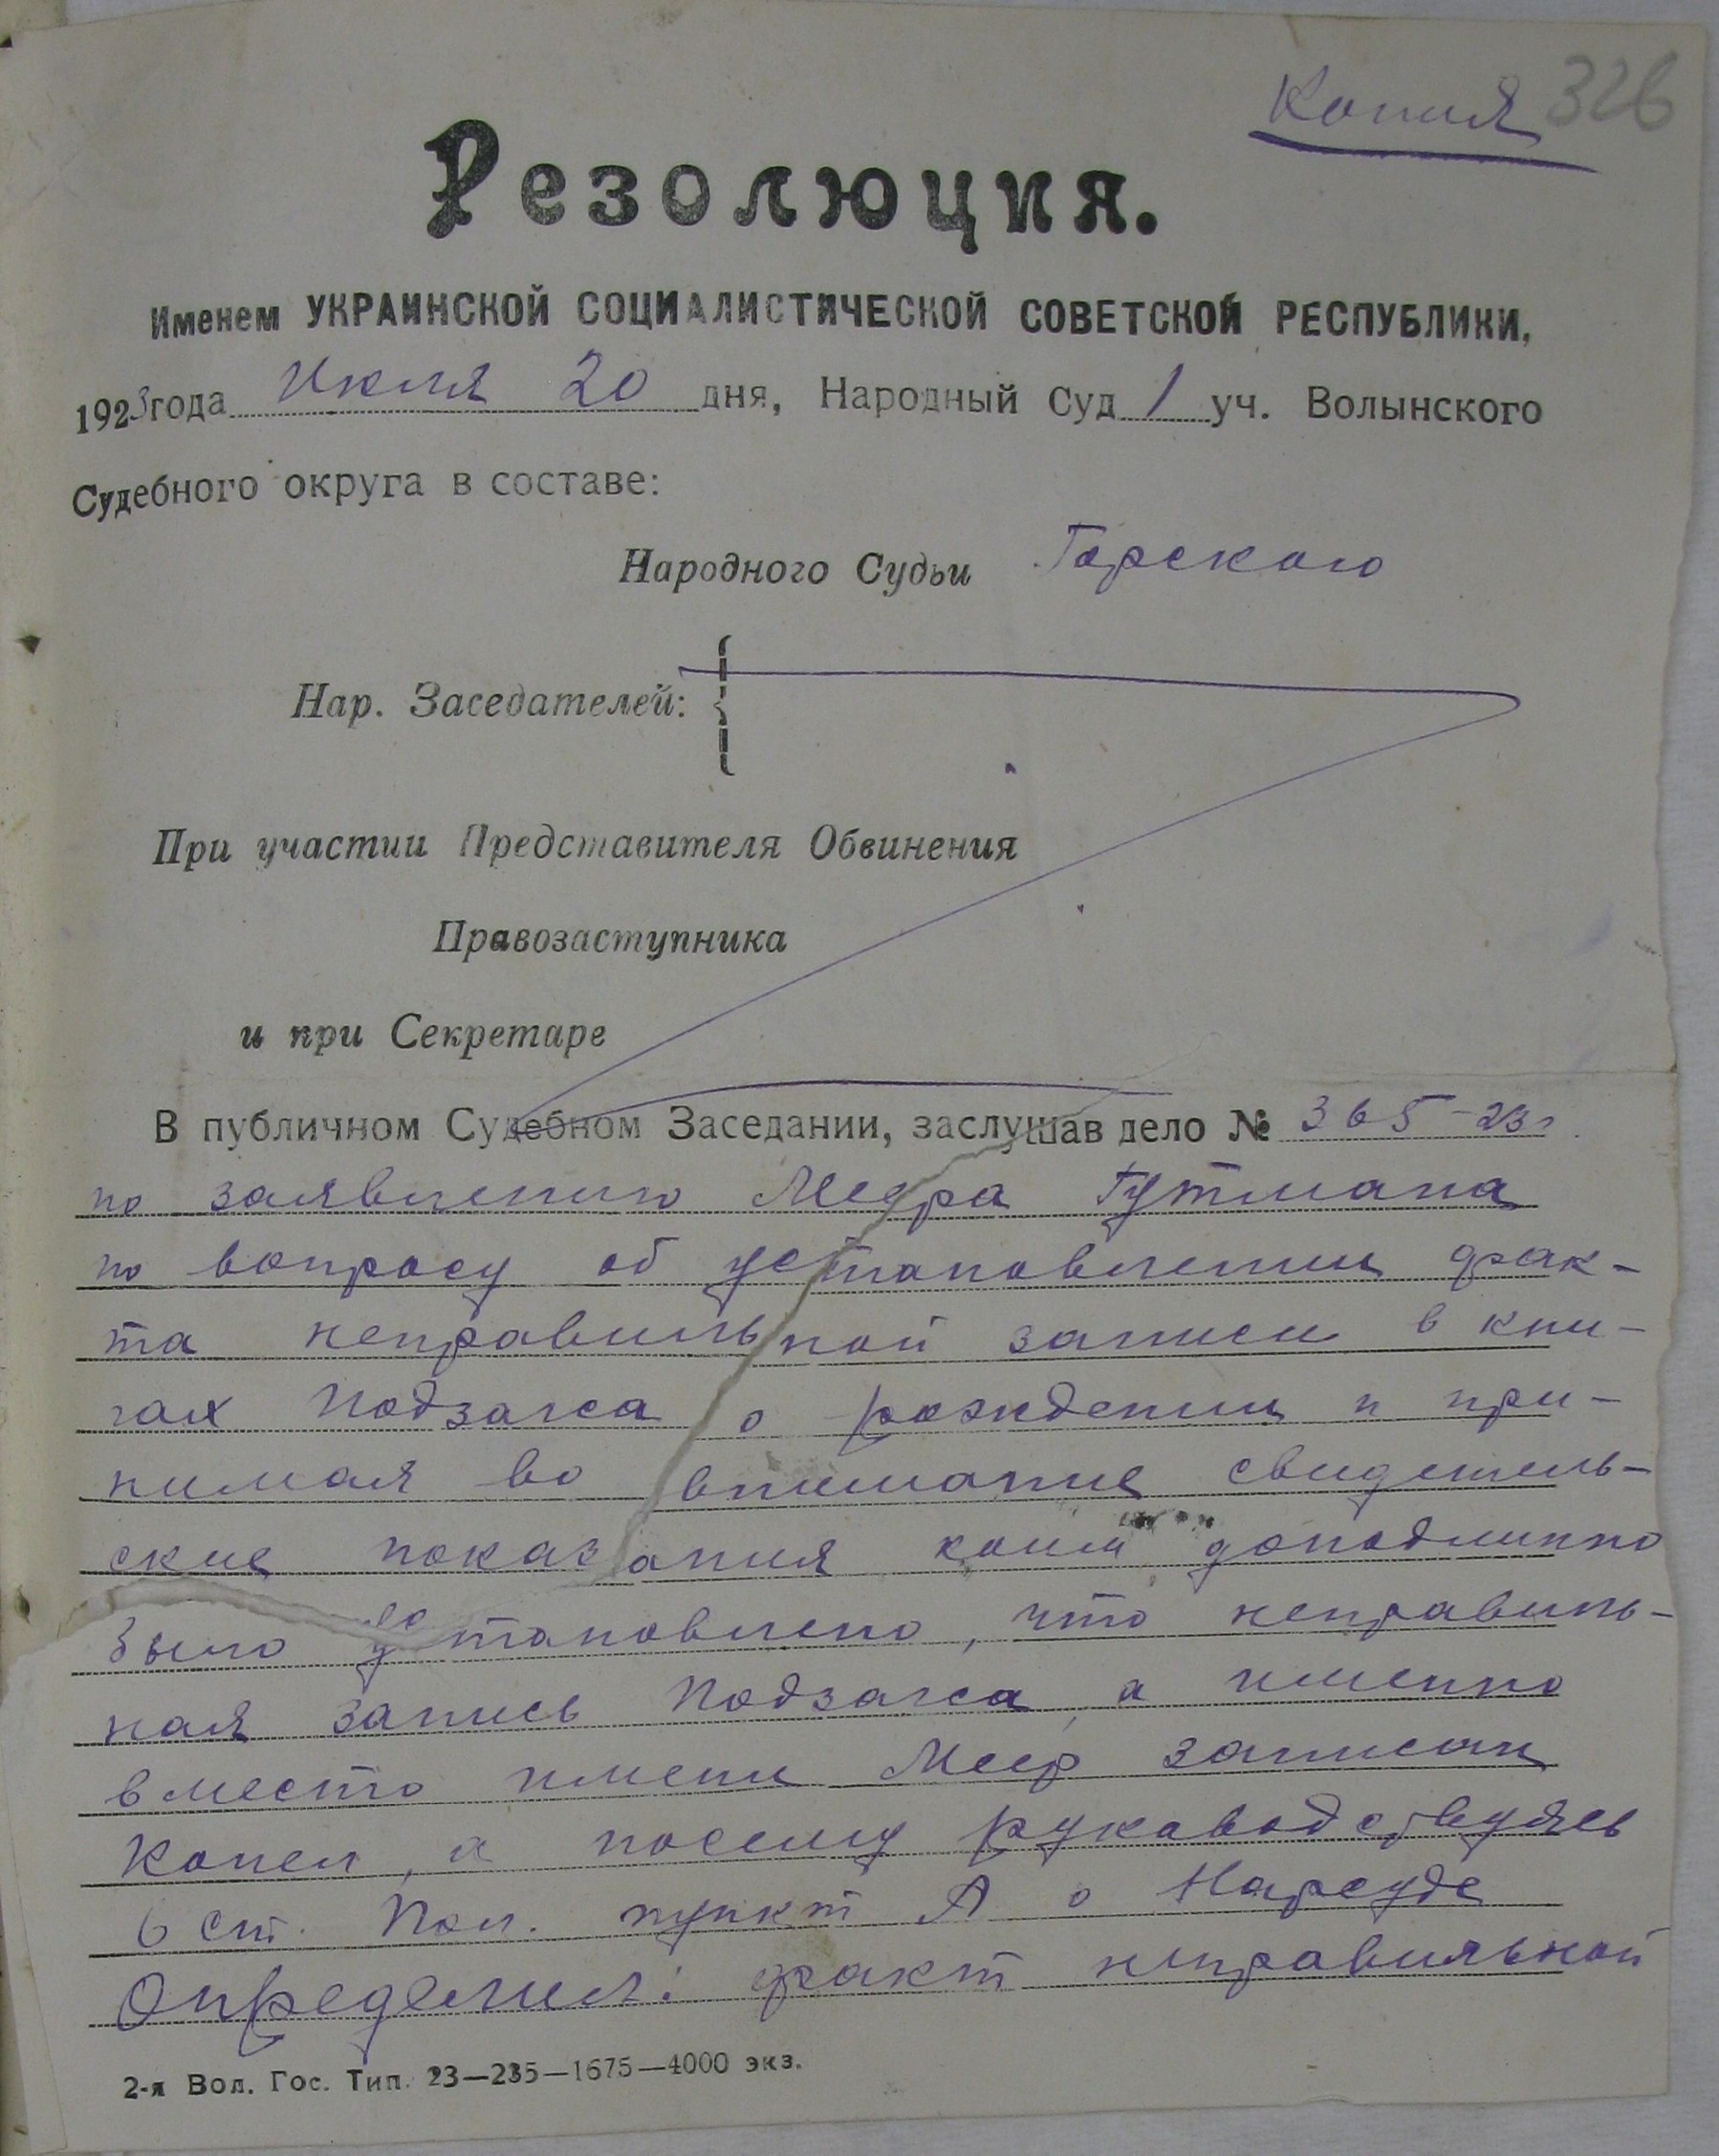 Копия 326
Резолюция.
Именем УКРАИНСКОЙ СОЦИАЛИСТИЧЕСКОЙ СОВЕТСКОЙ РЕСПУБЛИКИ,
1923 года Июля 20 дня, Народный Суд 1 уч. Волынского
Судебного округа в составе:
Народного Судьи Горского
Нар. Заседателей:
При участии Представителя Обвинения
Правозаступника
и при Секретаре
В публичном Судебном Заседании, заслушав дело № 365-23г
по заявлению Меера Гутмана
по вопросу об установлении фак-
та неправильной записи в кни-
гах Подзагса о рождении и при-
нимая во внимание свидетель-
ские показания коими доподлинно
было установлено, что неправиль-
ная запись Подзагса, а именно
вместо имени Меер записан
Копел, а посему руководствуясь
6 ст. Пол. пункт А о Нарсуде
Определил: факт неправильной
2-я Вол. Гос. Тип. 23—235—1675—4000 экз.